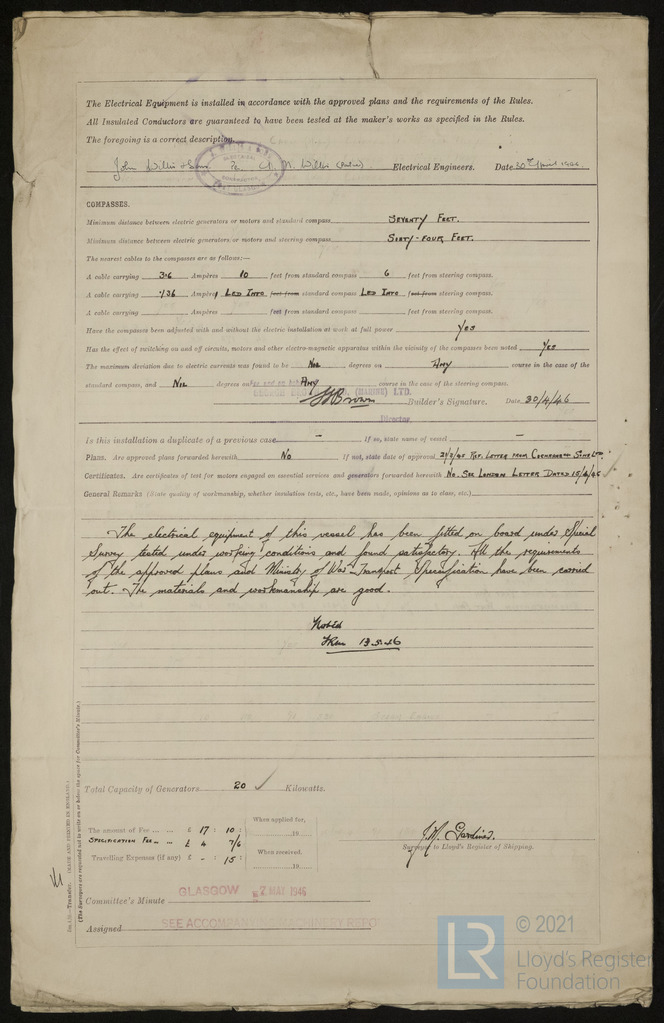 The Electrical Equipment is installed in accordance with the approved plans and the requirements of the Rules.
All Insulated Conductors are guaranteed to have been tested at the maker's works as specified in the Rules.
The foregoing is a correct description.
John Willis & Sons Per W. Willis Electrical Engineers. Date 30th April 1946.
COMPASSES.
Minimum distance between electric generators or motors and standard compass SEVENTY FEET.
Minimum distance between electric generators or motors and steering compass SIXTY-FOUR FEET.
The nearest cables to the compasses are as follows:—
A cable carrying 3·6 Ampères 10 feet from standard compass 6 feet from steering compass.
A cable carrying ·136 Ampères LED INTO feet from standard compass LED INTO feet from steering compass.
A cable carrying Ampères feet from standard compass feet from steering compass.
Have the compasses been adjusted with and without the electric installation at work at full power Yes
Has the effect of switching on and off circuits, motors and other electro-magnetic apparatus within the vicinity of the compasses been noted Yes
The maximum deviation due to electric currents was found to be NIL degrees on ANY course in the case of the
standard compass, and NIL degrees on ANY course in the case of the steering compass.
(MARINE) LTD.
Brown Builder's Signature. Date 30/4/46
Director.
Is this installation a duplicate of a previous case - If so, state name of vessel -
Plans. Are approved plans forwarded herewith No If not, state date of approval REF. LETTER FROM
Certificates. Are certificates of test for motors engaged on essential services and generators forwarded herewith No. SEE LONDON LETTER DATED 15/4/46
General Remarks (State quality of workmanship, whether insulation tests, etc., have been made, opinions as to class, etc.)
The electrical equipment of this vessel has been fitted on board under Special
Survey tested under working conditions and found satisfactory. All the requirements
of the approved plans and Ministry of War Transport Specification have been carried
out. The materials and workmanship are good.
Noted
13.5.46
Total Capacity of Generators 20 ✓ Kilowatts.
The amount of Fee ... ... £ 17 : 10 :
SPECIFICATION FEE .. .. £ 4 7/6
Travelling Expenses (if any) £ - : 15 :
When applied for,
19
When received.
19
J. M. Gardiner.
Surveyor to Lloyd's Register of Shipping.
GLASGOW 2 MAY 1946
Committee's Minute
SEE ACCOMPANYING MACHINERY REPORT
Assigned
(The Surveyors are requested not to write on or below the space for Committee's Minute.)
Transfer. (MADE AND PRINTED IN ENGLAND.)
LR
© 2021
Lloyd's Register
Foundation